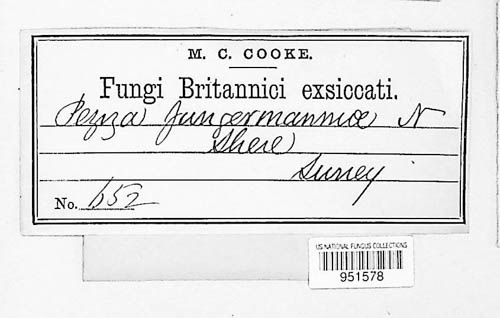 M. C. COOKE.
Fungi Britannici exsiccati.
Peziza Jungermanniæ N
Shere
Surrey
No. 652
US NATIONAL FUNGUS COLLECTIONS
951578